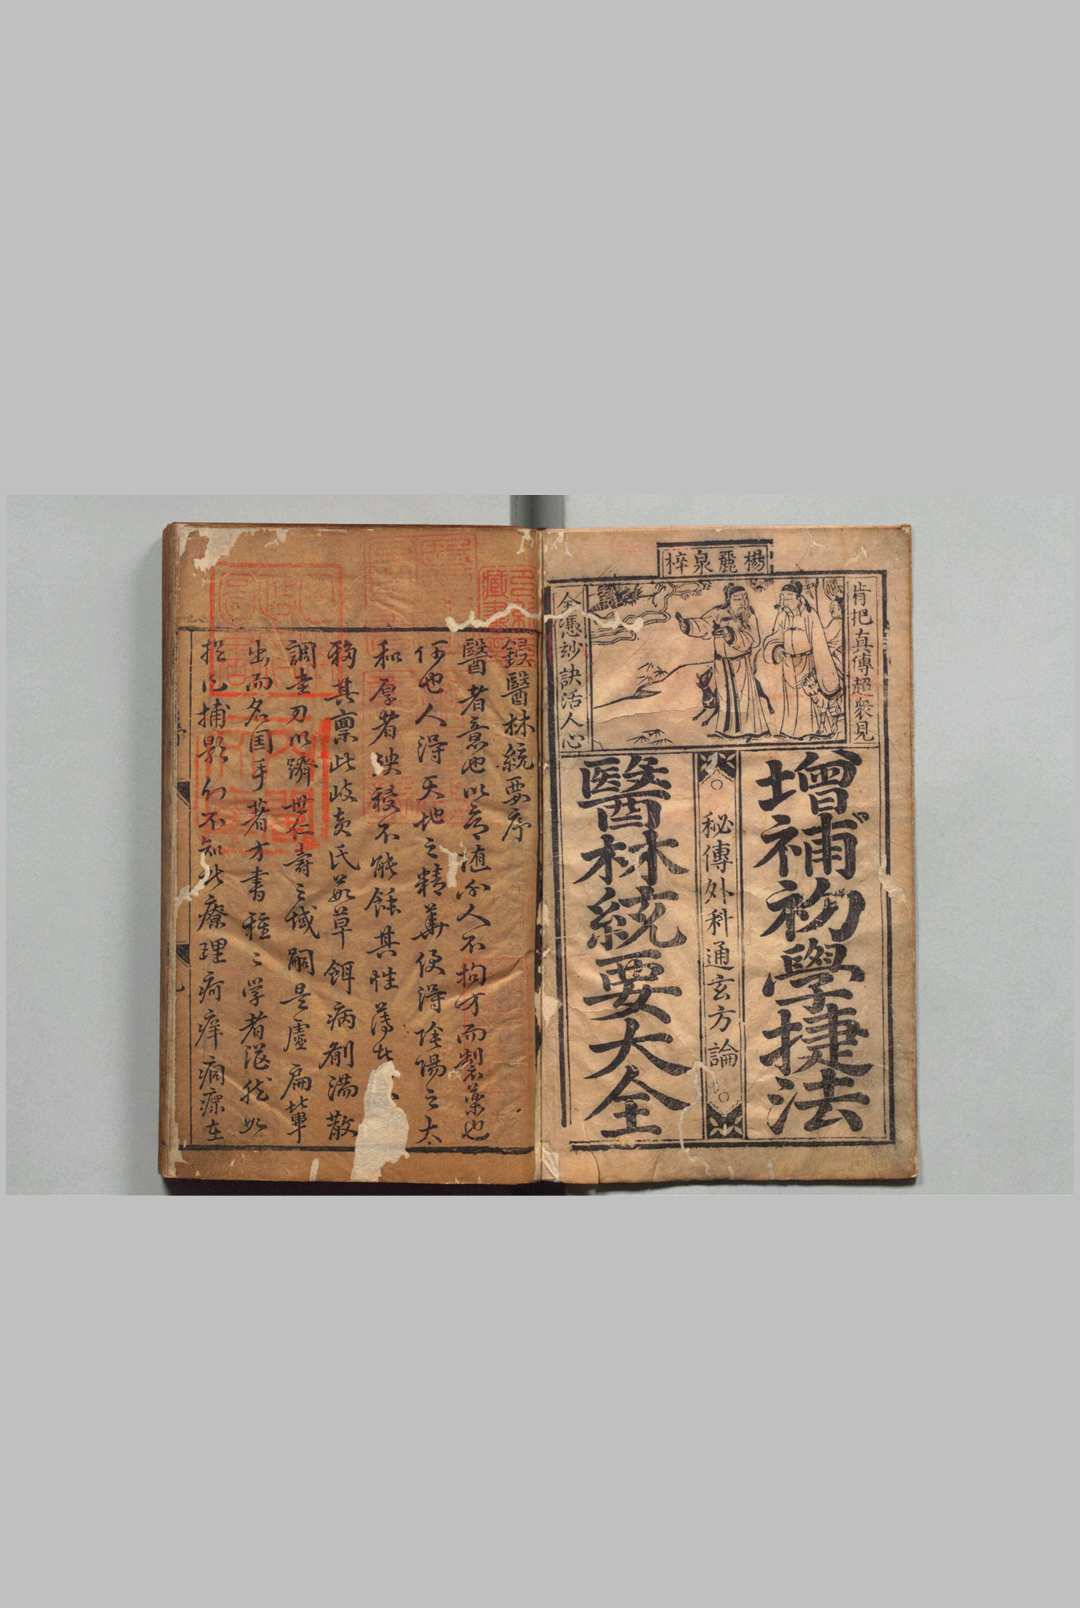 楊麗泉梓
肯把真傳超衆見
全憑妙訣活人心
增補初學捷法
○秘傳外科通玄方論○
醫林統要大全
鋟醫林統要序
醫者意也以意隨人不拘方而製藥也
何也人得天地之精華便得陰陽之大
和厚者殃稜不能飪其性薄者
移其稟此岐黃氏茹草餌病劑湯散
調圭刀以躋世仁壽之域嗣是盧扁輩
出而名国手著方書種〻学者茫然如
捉風捕影似不知此療理疴痒痼瘝在